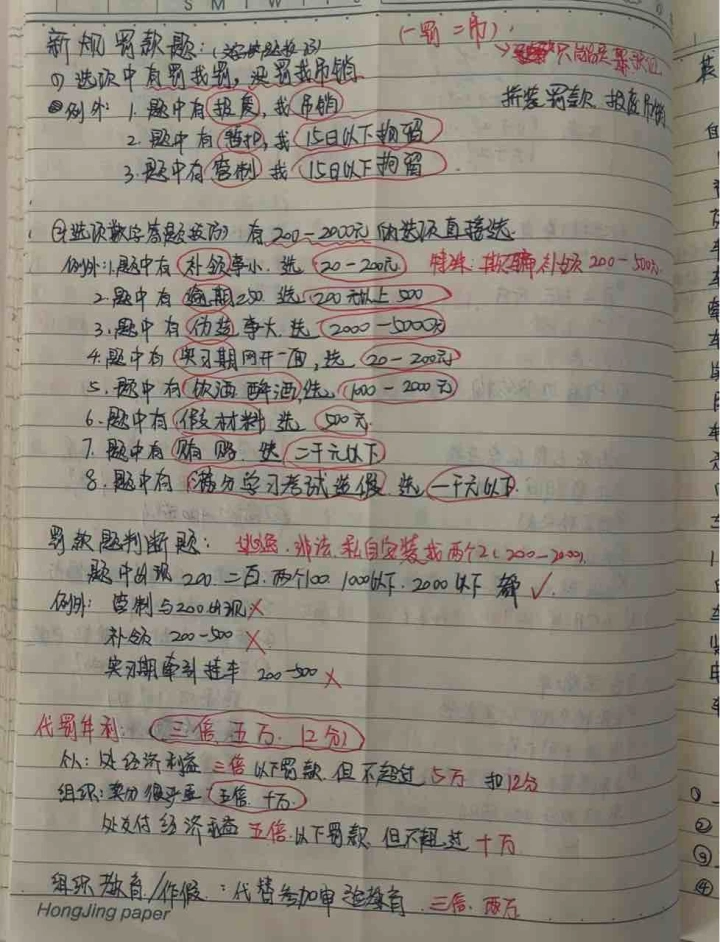 新规罚款题:
(一罚二吊)
① 选项中有罚找罚,没罚找吊销
例外: 1. 题中有报废,找吊销
拼装罚款 报废吊销
2. 题中有暂扣,找 15日以下拘留
3. 题中有管制 找 15日以下拘留
② 有 200-2000元的选项直接选.
例外:1.题中有补领事小. 选 20-200元. 特殊: 欺骗补领 200-500元
2. 题中有逾期 选 200元以上 500
3. 题中有伪造事大. 选 2000-5000元
4. 题中有实习期网开一面, 选 20-200元
5. 题中有饮酒 醉酒, 选 1000-2000元
6. 题中有假材料 选 500元.
7. 题中有贿赂. 选 二千元以下
8. 题中有满分学习考试造假 选 一千元以下.
罚款题判断题: 逃逸. 非法. 私自安装找两个2(200-2000).
题中出现 200. 二百. 两个100. 1000以下. 2000以下 都 ✓.
例外: 管制与200出现 ×
补领 200-500 ×
实习期牵引挂车 200-500 ×
代罚牟利: 三倍 五万. 12分
个人: 处经济利益 三倍以下罚款. 但不超过 5万 扣12分
组织: 卖分很严重 五倍 十万.
处支付经济利益 五倍以下罚款 但不超过 十万
组织教育/作假: 代替参加审验教育 三倍. 两万
HongJing paper